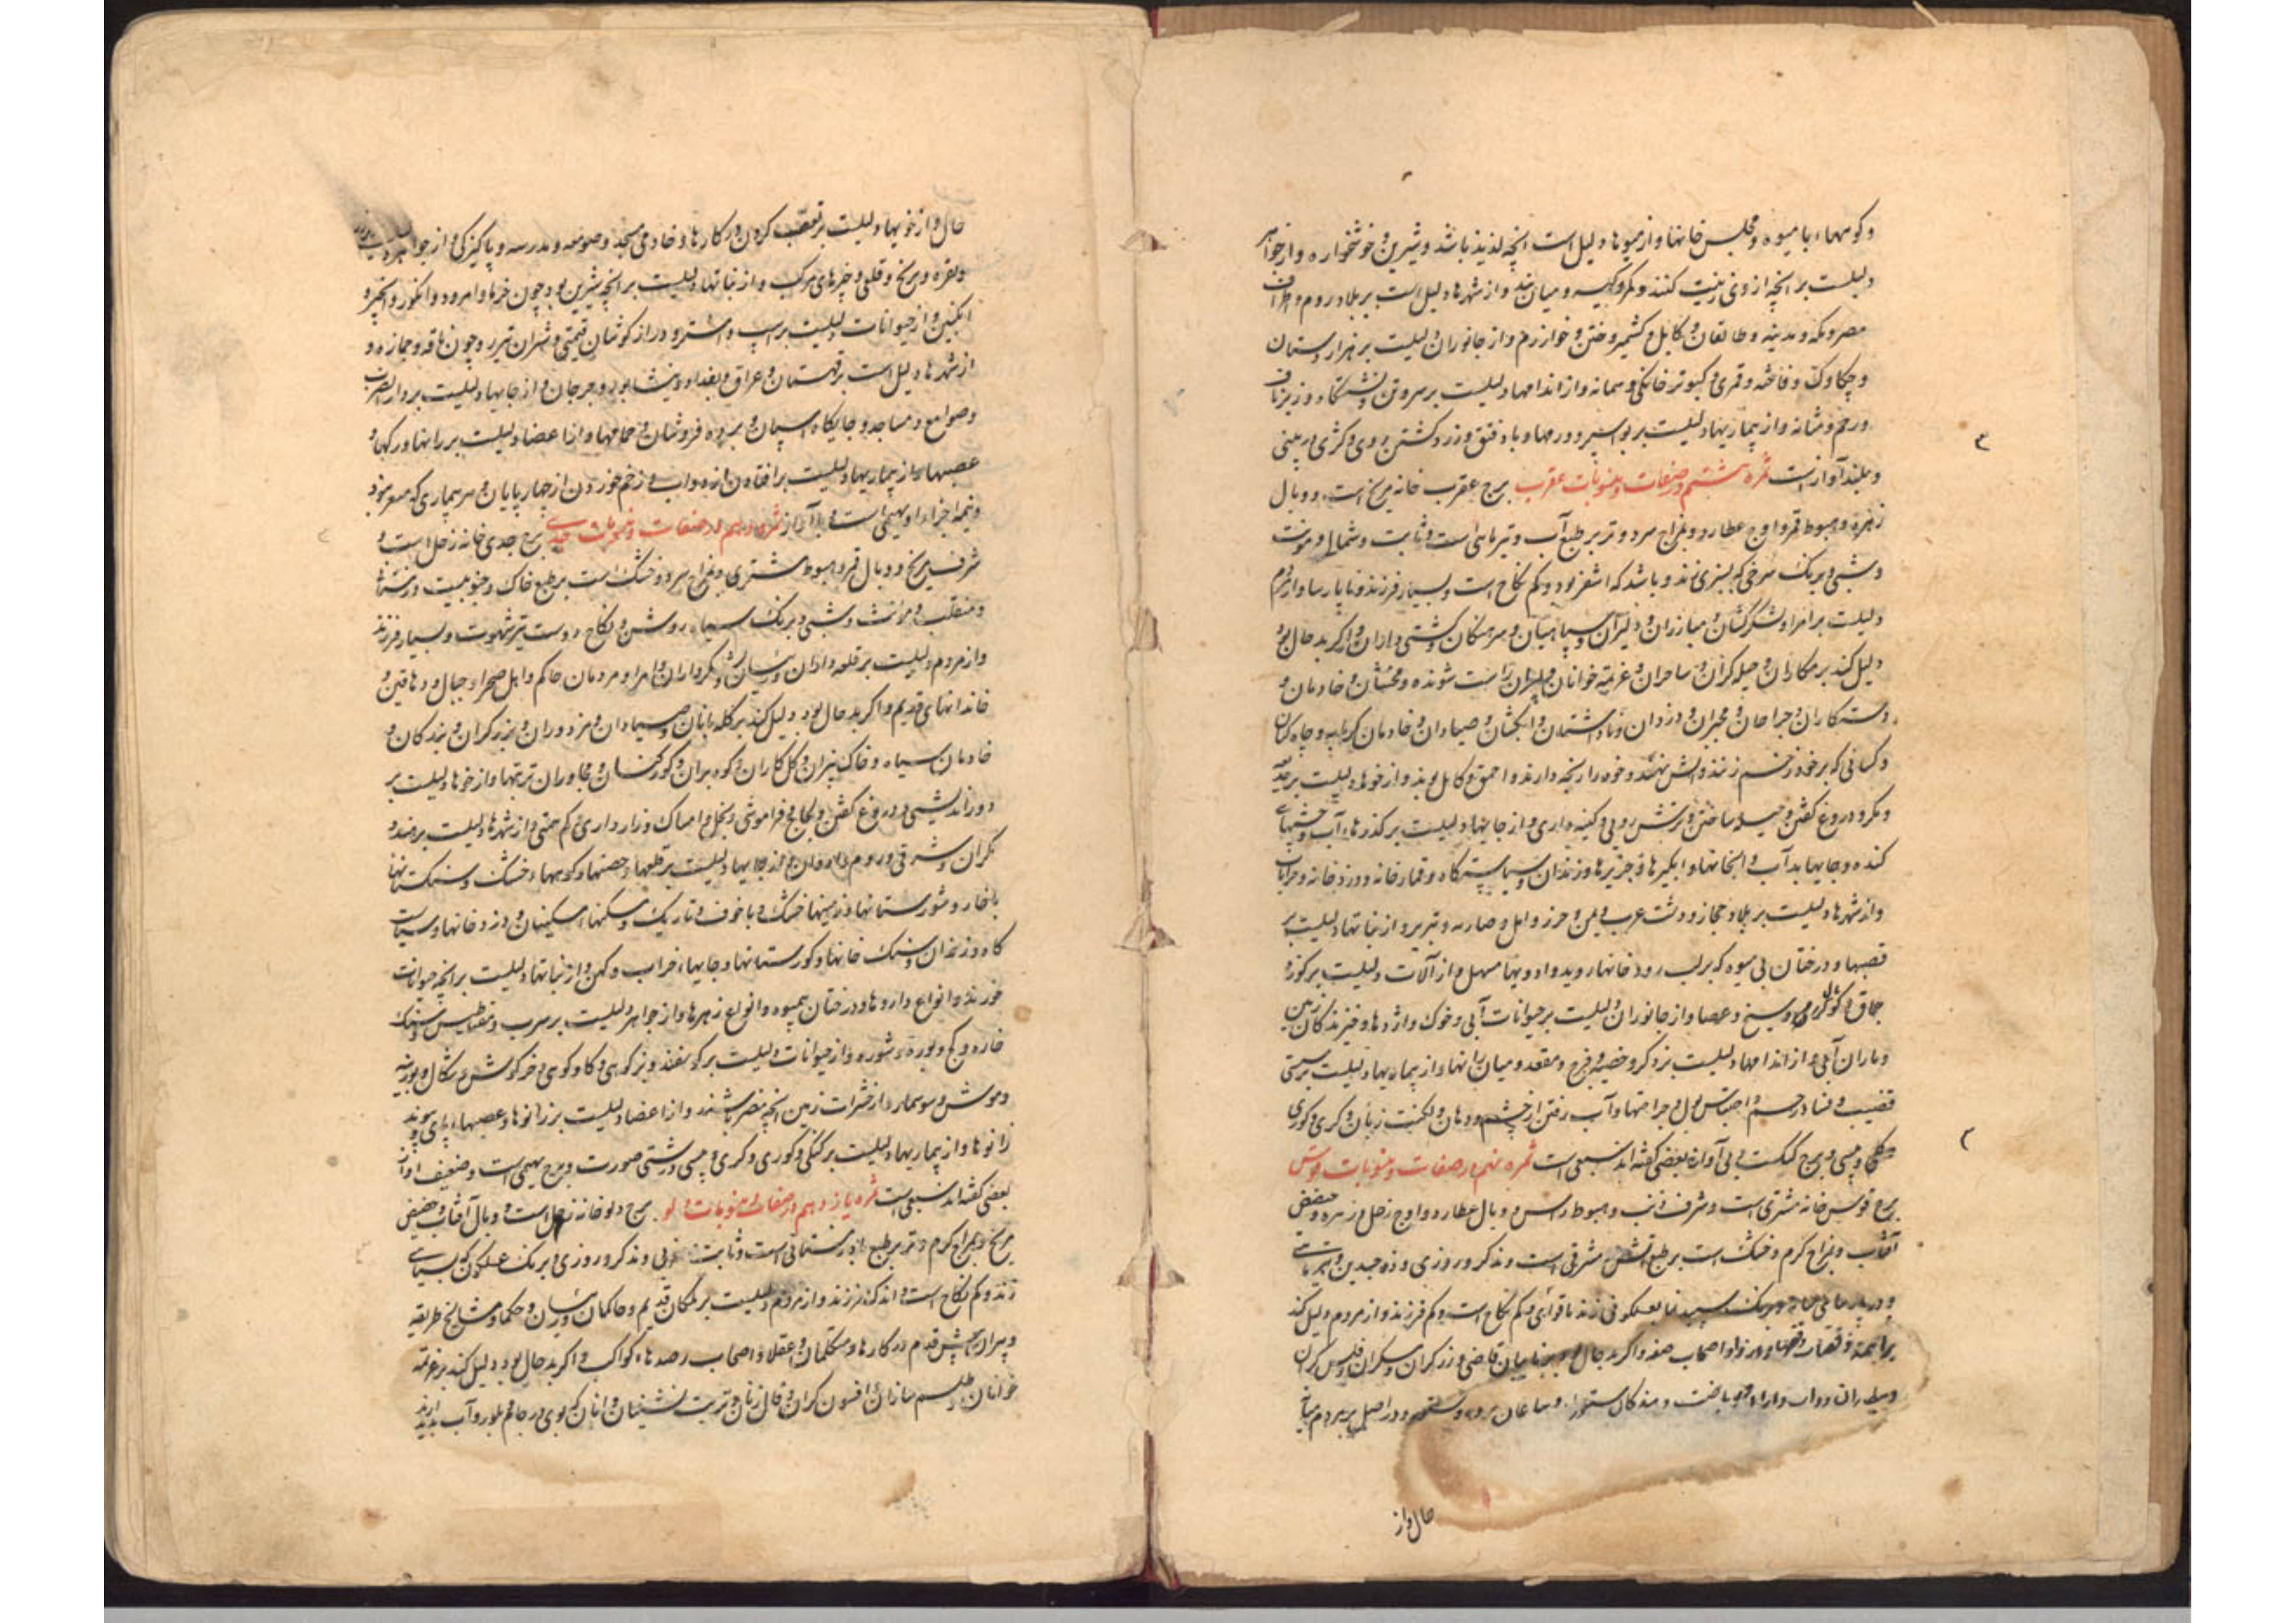 و کوهها، با میوه و مجلس خانها و از میوها دلیل است آنچه لذیذ باشد و شیرین و خوشخواره و از جواهر
دلیلست بر آنچه از وی زینت کنند و کمر و کیسه و میان بند و از شهرها دلیل است بر بلاد روم و اطراف
مصر و مکه و مدینه و طالقان و کابل و کشمیر و ختن و خوارزم و از جانوران دلیلست بر هزاردستان
و چکاوک و فاخته و قمری و کبوتر خانگی و سمانه و از اندامها دلیلست بر سرون و نشستگاه و زیر ناف
و رحم و مثانه و از بیماریها دلیلست بر بواسیر و ورمها و باد فتق و زرد گشتن روی و کژی در بینی
و بلند آواز است ثمره هشتم در صفات و منسوبات عقرب برج عقرب خانه مریخ است و وبال
زهره و هبوط قمر و اوج عطارد و بمزاج سرد و تر بر طبع آب و تیرماهی است و ثابت و شمالی و مونث
و شبی و برنگ سرخی که بسبزی زند و باشد که اشقر بود و کم نکاح است و بسیار فرزند و ناپارسا و از مردم
دلیلست بر امرا و لشکرکشان و مبارزان و دلیران و سپاهیان و سرهنگان و کشتی داران و اگر بد حال بود
دلیل کند بر مکاران و حیله گران و ساحران و عزیمه خوانان و شونده و مخنثان و خادمان و
دستکاران و جراحان و مجبران و دزدان و ناداشتان و صیادان و خادمان گرمابه و چاه کنان
و کسانی که بر خود زخم زنند و آتش نهند و خود را رنجه دارند و احمق و کاهل بوند و از خوها دلیلست بر حقد
و مکر و دروغ گفتن و حیله ساختن و ترش رویی و کینه داری و از جایها دلیلست بر گذرهاء آب و چشمهای
کنده و جایها بد آب و آبخانها و آبگیرها و جزیرها و زندان و سیاستگاه و قمارخانه و دزدخانه و خرابات
و از شهرها دلیلست بر بلاد حجاز و دشت عرب و یمن و خزر و آمل و ساریه و تبریز و از نباتها دلیلست بر
قصبها و درختان بی میوه که بر لب رودخانها روید و ادویها مسهل و از آلات دلیلست بر کوزه
چماق و کوپال و سیخ و عصا و از جانوران دلیلست بر حیوانات آبی و خوک و اژدها و خزندگان زمین
و ماران آبی و از اندامها دلیلست بر ذکر و خصیه و فرج و مقعد و میان رانها و از بیماریها دلیلست بر سستی
قضیب و فساد رحم و احتباس بول و جراحتها و آب رفتن از چشم و دهان و لکنت زبان و کری و کوری
کلی و پیسی و برج گنگست و بی آواز و بعضی گفته اند سبعی است ثمره نهم در صفات و منسوبات قوس
برج قوس خانه مشتری است و شرف ذنب و هبوط راس و وبال عطارد و اوج زحل و زهره و حضیض
آفتاب و بمزاج گرم و خشک است بر طبع آتش مشرقی است و مذکر و روزی و ذو جسدین و تیرماهی
برنگ سپید زند با قوای و کم نکاح است و کم فرزند و از مردم دلیل کند
بر ایمه و قضات و فقها و اصحاب صفه و اگر بد حال بود
حال و از
حال و از خویها دلیلست بر تعصب کردن در کارها و خادمی مسجد و صومعه و مدرسه و پاکیزگی و از جواهر
و نقره و برنج و قلعی و چیزهای مرکب و از نباتها دلیلست بر آنچه شیرین بود چون خرما و امرود و انگور و انجیر و
انگبین و از حیوانات دلیلست بر اسپ و اشتر و دراز گوشان قیمتی و شتران تیزرو چون ناقه و جمازه و
از شهرها دلیل است بر قهستان و عراق و بغداد و نیشابور و جرجان و از جایها دلیلست بر دار الضرب
و صوامع و مساجد و جایگاه اسپان و برده فروشان و حمامها و از اعضا دلیلست بر رانها و رگها و
عصبها و از بیماریها دلیلست بر افتادن از دواب و زخم خوردن از چهارپایان و هر بیماری که صعب بود
و نیمه آخر او بهیمی است و با آواز ثمره دهم در صفات و منسوبات جدی برج جدی خانه زحل است و
شرف مریخ و وبال قمر و هبوط مشتری و بمزاج سرد و خشک است بر طبع خاک و جنوبیست و زمستانی
و منقلب و مونث و شبی و برنگ سیاه روشن و نکاح دوست تیز شهوت و بسیار فرزند
و از مردم دلیلست بر قلعه داران و رئیسان و امرا و مردمان حاکم و اهل صحرا و جبال و دهاقین و
خاندانهای قدیم و اگر بد حال بود دلیل کند بر گله بانان و صیادان و مزدوران و برزگران و بندگان و
خادمان سیاه و خاک بیزان و گل کاران و کوه بران و گورکنان و مجاوران تربتها و از خوها دلیلست بر
دوراندیشی و دروغ گفتن و لجاج و فراموشی و بخل و امساک و رازداری و کم همتی و از شهرها دلیلست بر هند و
مکران و شرقی و روم و از جایها دلیلست بر قلعها و حصنها و کوهها، خشک و سنگستانها
با خار و شورستانها و زمینها خشک و با خوف و تاریک و مسکنها، مسکینان و دزدخانها و سیاست
گاه و زندان و سنگ خانها و گورستانها و جایها، خراب و کهن و از نباتها دلیلست بر آنچه حیوانات
خورند و انواع داروها و درختان بیمیوه و انواع زهرها و از جواهر دلیلست بر سرب و مغناطیس و سنگ
خاره و گچ و بوره و شوره و از حیوانات دلیلست بر گوسفند و بز کوهی و گاو کوهی و خرگوش و شگال و بوزینه
و موش و سوسمار و از حشرات زمین آنچه مضر باشند و از اعضا دلیلست بر زانوها و عصبها، پای و پیوند
زانوها و از بیماریها دلیلست بر گنگی و کوری و کری و پیسی و زشتی صورت و برج بهیمی است و ضعیف آواز
بعضی گفته اند سبعی است ثمره یازدهم در صفات و منسوبات دلو برج دلو خانه زحل است و وبال آفتاب و حضیض
مریخ و بمزاج گرم و تر بر طبع باد زمستانی است و ثابت و غربی و مذکر و روزی و برنگ عسلگون که بسیاهی
زند و کم نکاح است و اندک فرزند و از مردم دلیلست بر ملکان قدیم و حاکمان و رئیسان و حکما و مشایخ طریقه
و پیران پیش قدم در کارها و متکلمان و عقلا و اصحاب رصدهاء کواکب و اگر بد حال بود دلیل کند بر عزیمه
خوانان و طلسم سازان و افسون گران و فال زنان و تربت نشینان و آنان که بوی در جام بلور و آب پدید آرند